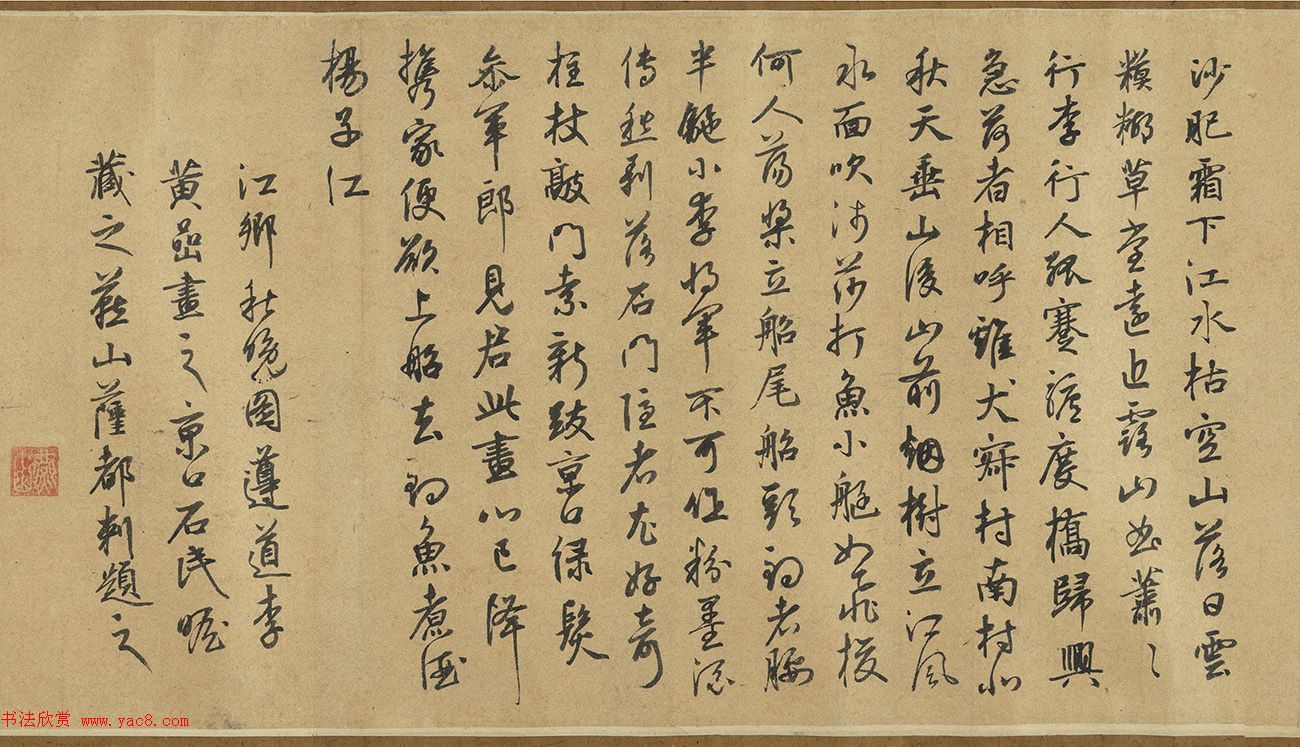 沙肥霜下江水枯空山落日雲
糢糊草堂遠近露山色蕭〻
行李行人孤蹇驢度橋歸興
急荷者相呼雞犬寂村南村北
秋天垂山後山前烟樹立江風
水面吹莎打魚小艇如飛梭
何人蕩槳立船尾船頭釣者腰
半駝小李將軍不可作粉墨
傳愁剥落石門隱者尤好奇
拄杖敲門索新跋京口綠髮
參軍郎見君此畫心已降
携家便欲上船去釣魚煮酒
楊子江
江鄉秋晚圖遵道李
黃嵒畫之京口石民瞻
藏之燕山薩都剌題之
书法欣赏 www.yac8.com